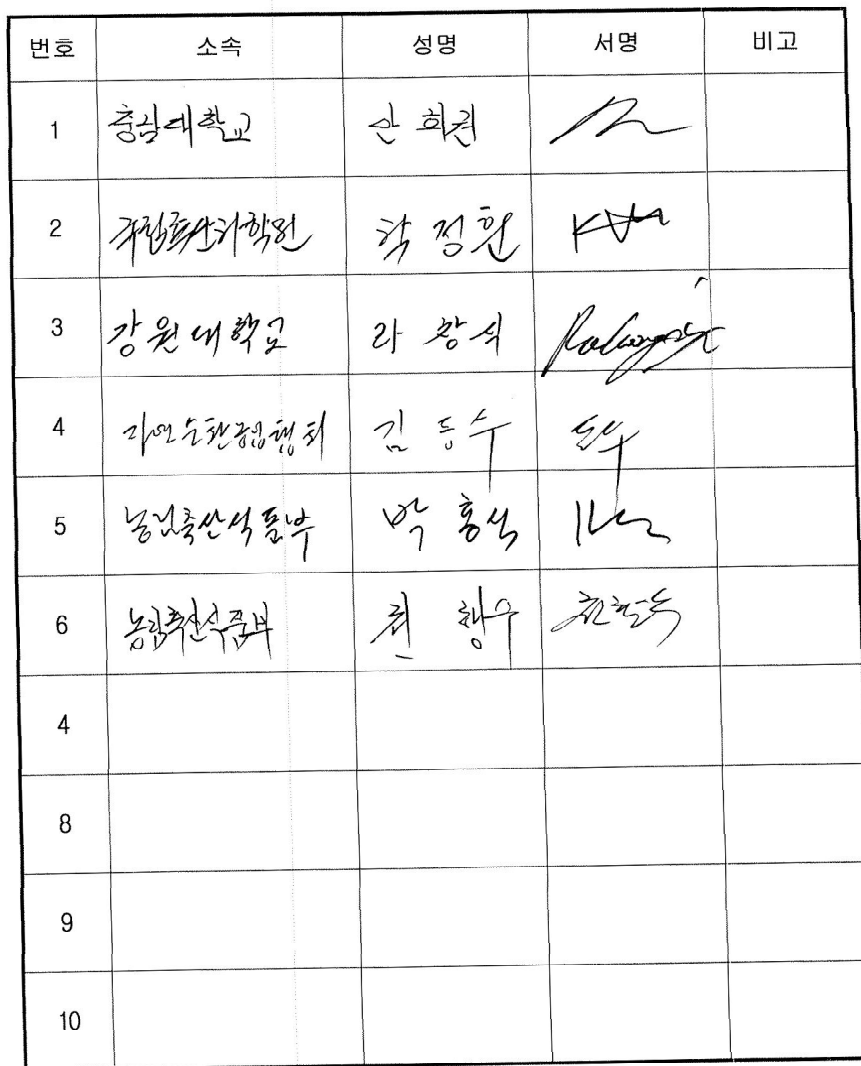 번호 소속 성명 서명 비고
1 충남대학교 안희권
2 국립축산과학원 곽정훈
3 강원대학교 라창식 
4 자연순환농업협회 김동수 동수
5 농림축산식품부 박홍식
6 농림축산식품부
4
8
9
10